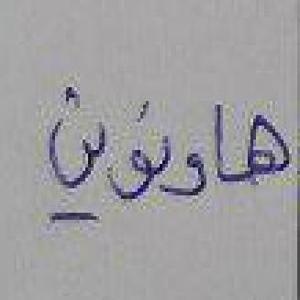 هاونوَنِ